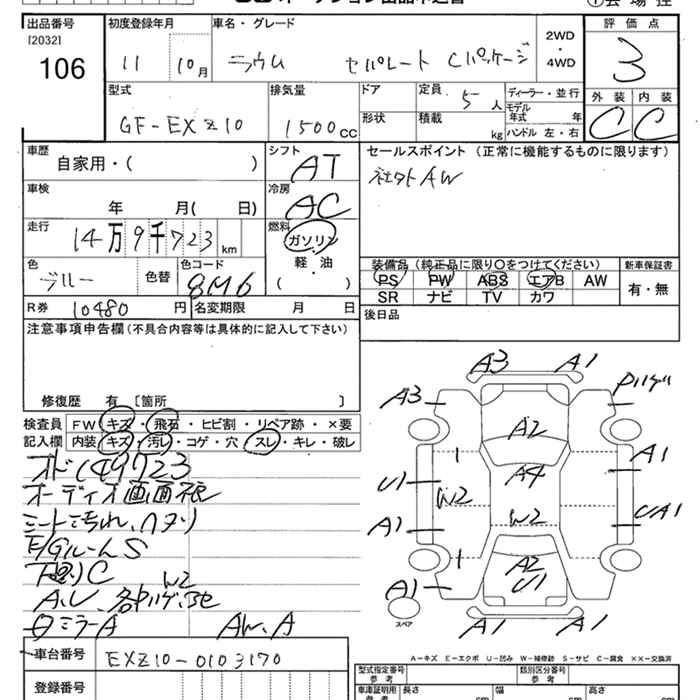 出品番号
[2032]
106
初度登録年月
11 10月
車名・グレード
ラウム セパレート Cパッケージ
2WD
・
4WD
評価点
3
外装 内装
C C
型式
GF-EXZ10
排気量
1500cc
ドア
定員 5人
ディーラー・並行
モデル年式 年
形状
積載 kg
ハンドル 左・右
車歴
自家用・( )
シフト
AT
セールスポイント (正常に機能するものに限ります)
社外AW
車検
年 月( 日)
冷房
AC
走行
14万9千723km
燃料
ガソリン
軽・油
( )
色
ブルー
色替
色コード
8M6
装備品 (純正品に限り○をつけてください)
PS PW ABS エアB AW
SR ナビ TV カワ
新車保証書
有・無
R券 10480円
名変期限 月 日
後日品
注意事項申告欄(不具合内容等は具体的に記入して下さい)
修復歴 有 [箇所 ]
検査員
記入欄
FW キズ・飛石・ヒビ割・リペア跡・×要
内装 キズ・汚レ・コゲ・穴・スレ・キレ・破レ
オド149723
オーディオ画面
シート汚れ、ヘタリ
E/GルームS
下廻りC
W2
A.U、各ハゲ、
ミラーA AW、A
A3 A1
A3
A2
A1
U1
A4
W2
W2
A1
UA1
A2
U1
A1
A1 A1
スペア
A-キズ E-エクボ U-凹み W-補修跡 S-サビ C-腐食 ××-交換済
車台番号
EXZ10-0103170
登録番号
型式指定番号
参考
類別区分番号
参考
車庫証明用
参考
長さ cm
幅 cm
高さ cm